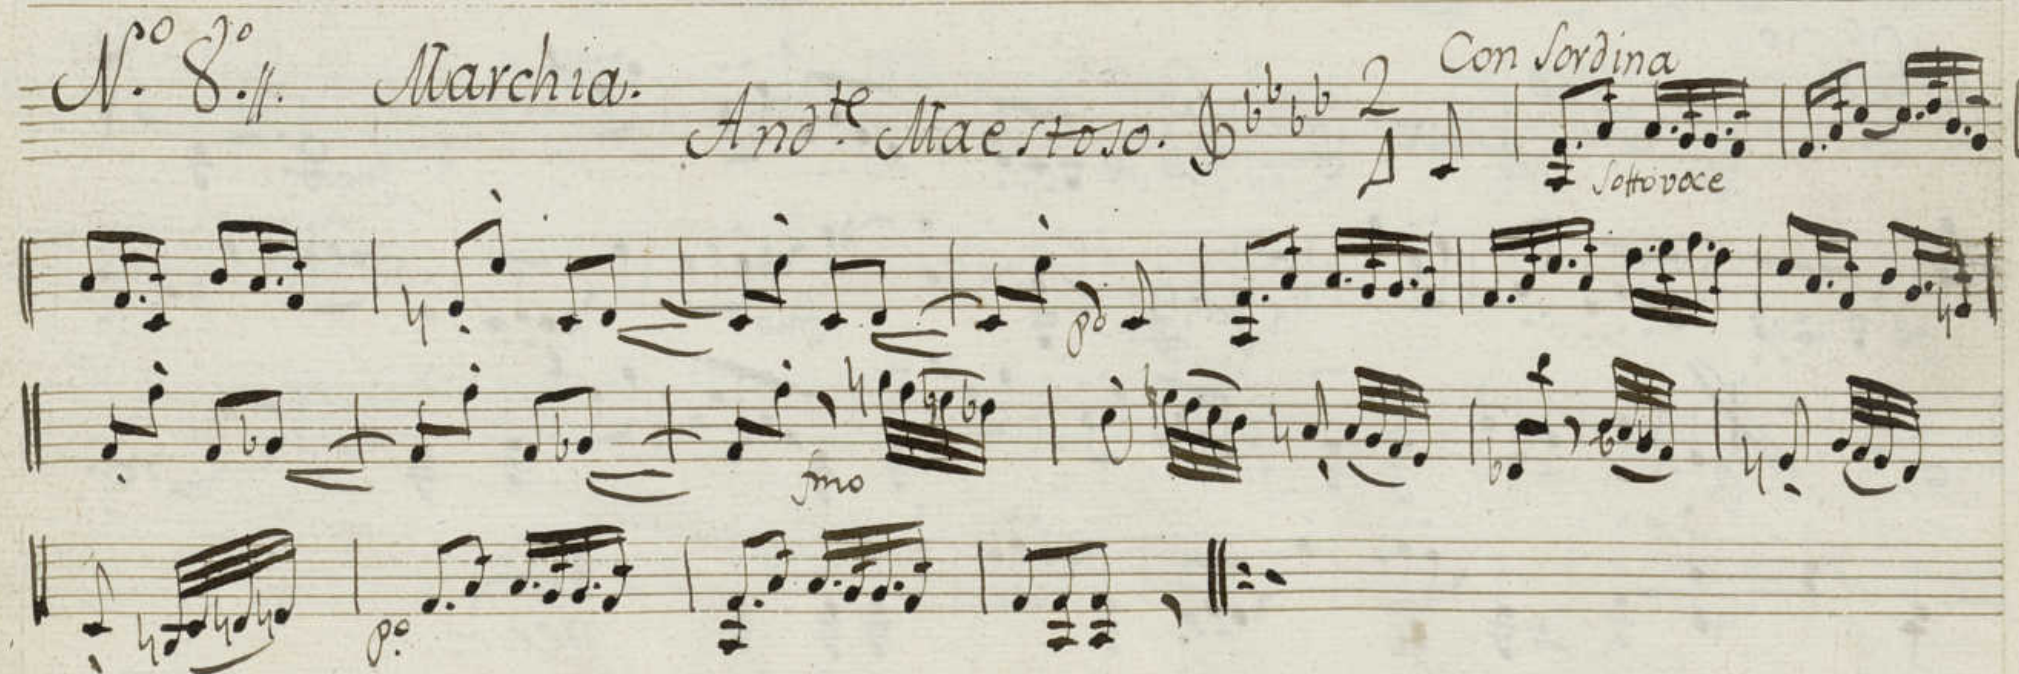 N.º 8.º //. Marchia. And.te Maestoso. 2/4 Con Sordina
Sottovoce
pº
fmo
p.º